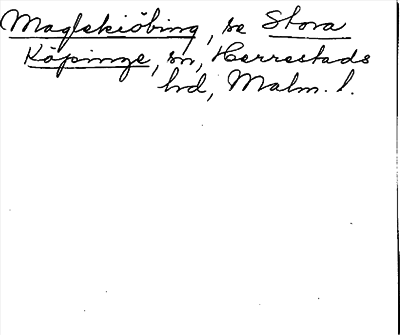 Maglekiöbing, se Stora
Köpinge, sn, Herrestads
hd, Malm. l.